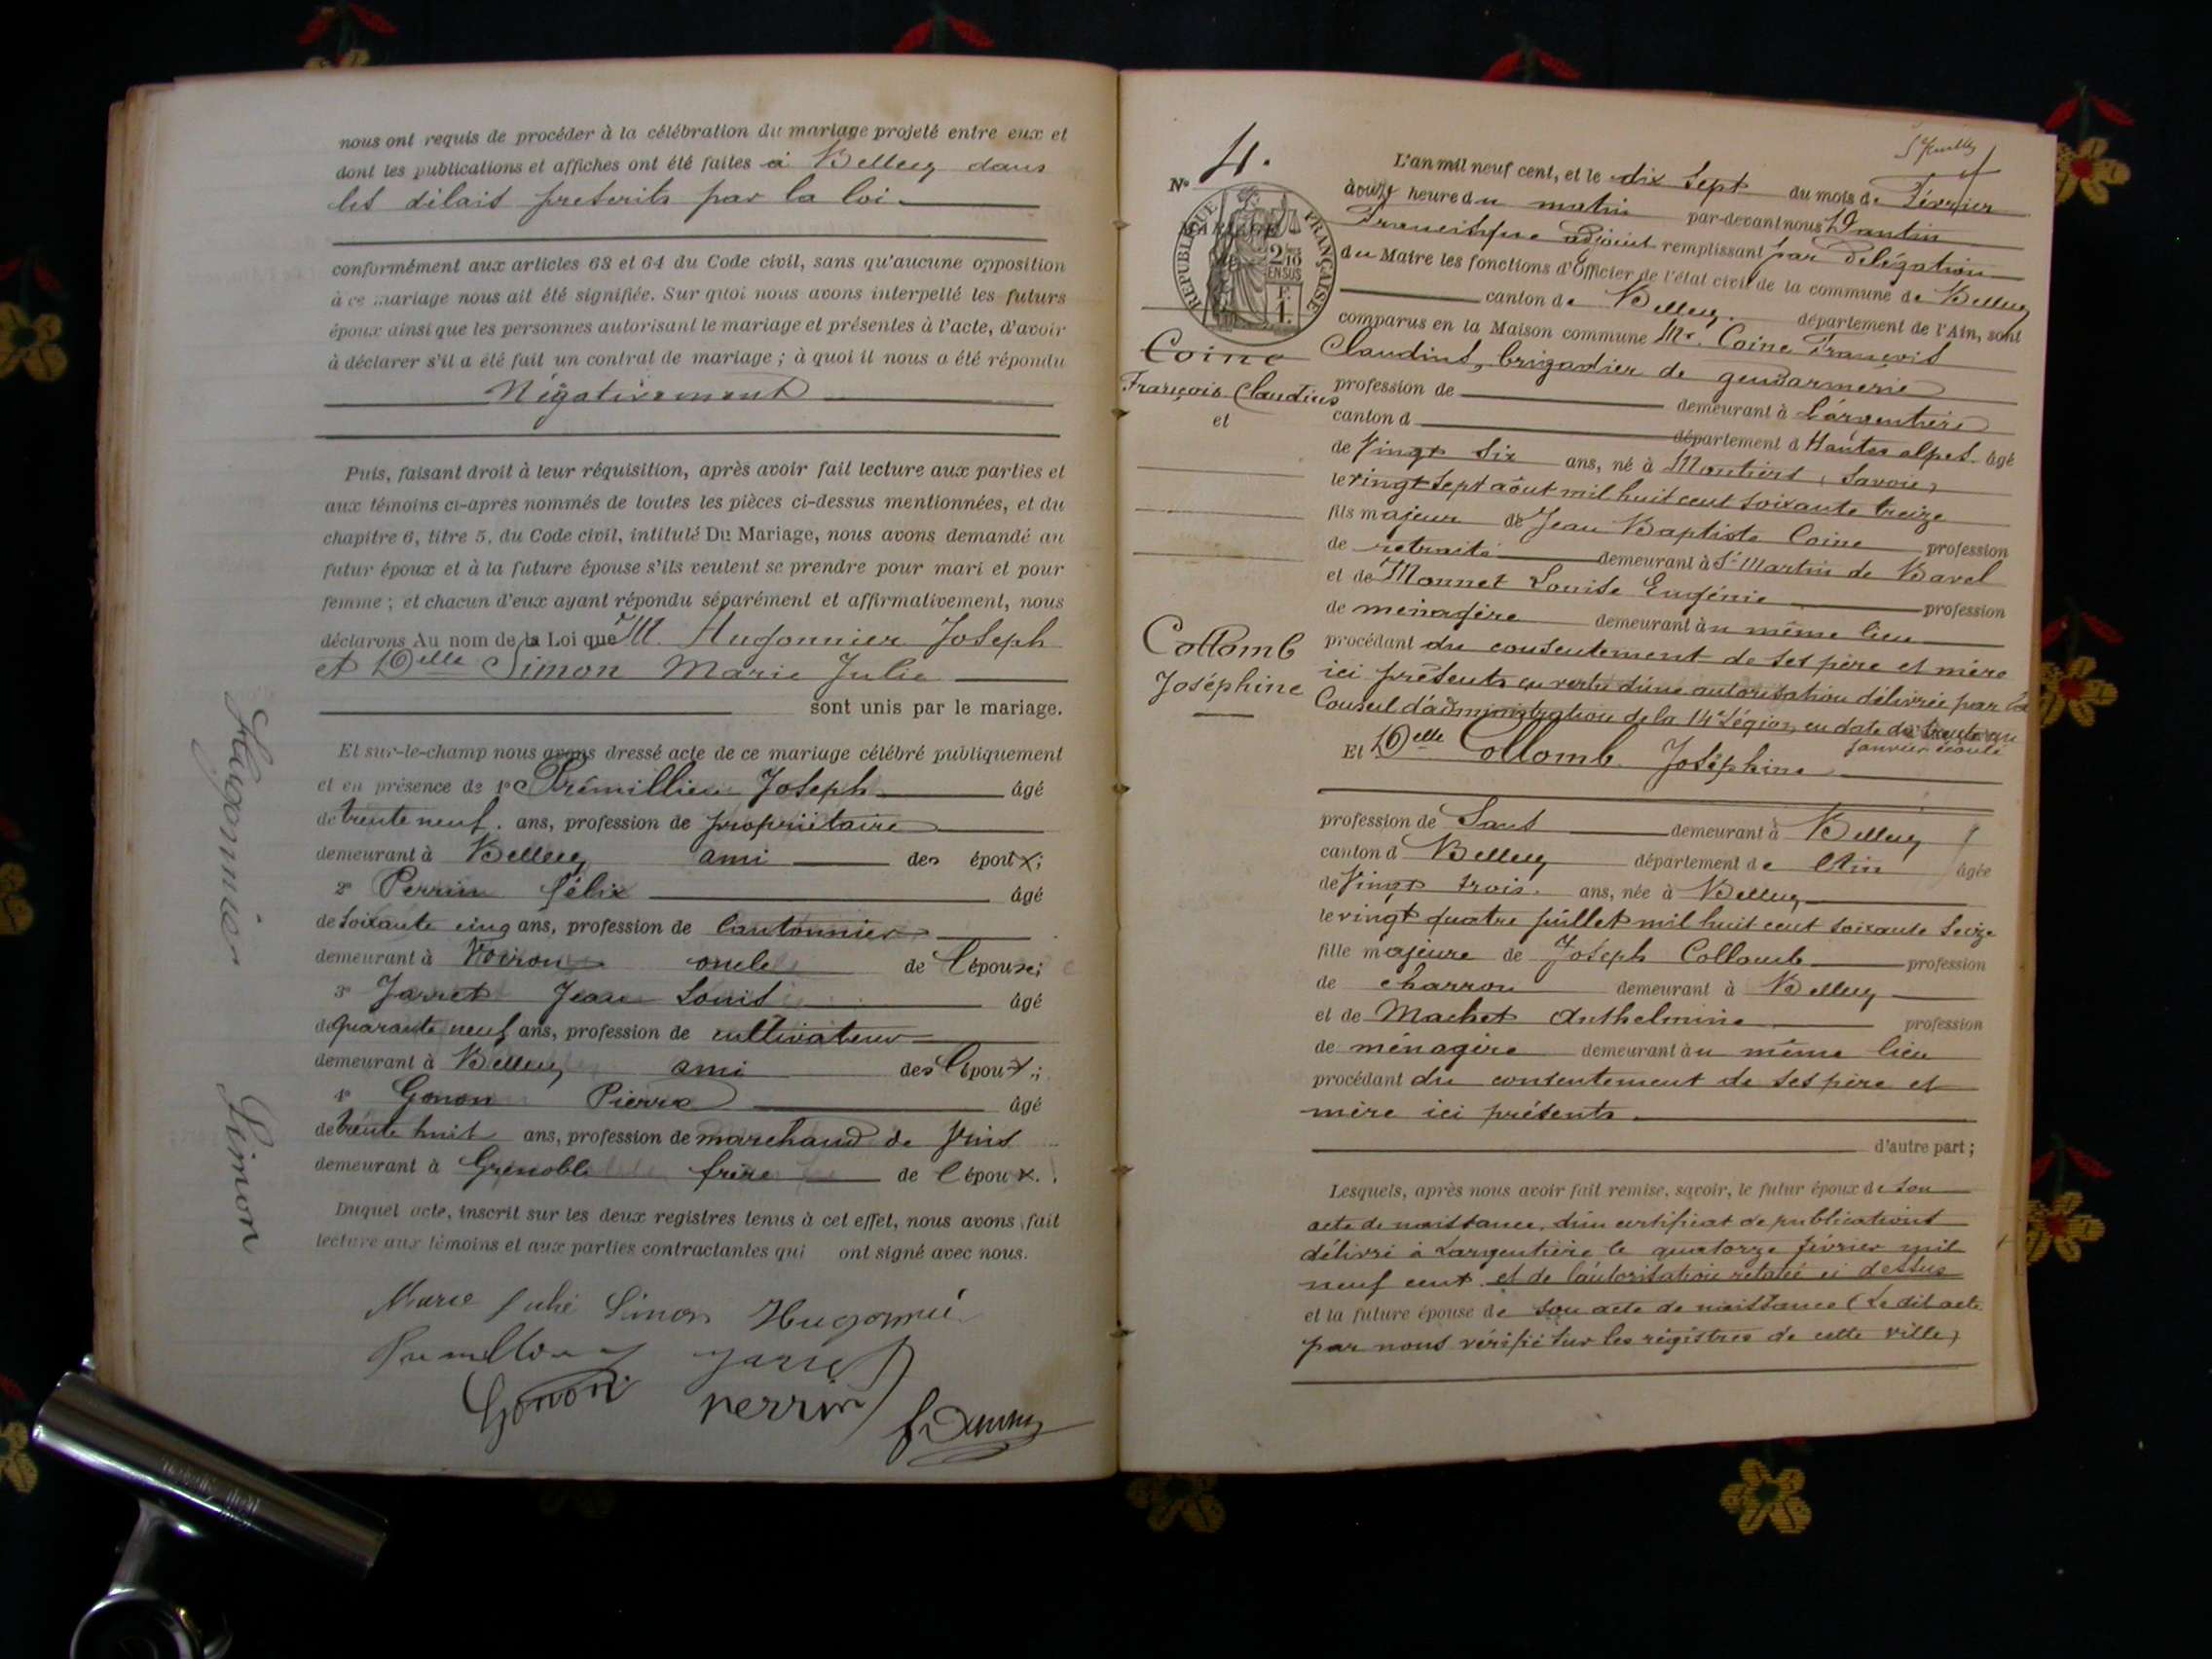 nous ont requis de procéder à la célébration du mariage projeté entre eux et
dont les publications et affiches ont été faites à Belley dans
les délais prescrits par la loi
conformément aux articles 63 et 64 du Code civil, sans qu'aucune opposition
à ce mariage nous ait été signifiée. Sur quoi nous avons interpellé les futurs
époux ainsi que les personnes autorisant le mariage et présentes à l'acte, d'avoir
à déclarer s'il a été fait un contrat de mariage ; à quoi il nous a été répondu
Négativement
Puis, faisant droit à leur réquisition, après avoir fait lecture aux parties et
aux témoins ci-après nommés de toutes les pièces ci-dessus mentionnées, et du
chapitre 6, titre 5, du Code civil, intitulé Du Mariage, nous avons demandé au
futur époux et à la future épouse s'ils veulent se prendre pour mari et pour
femme ; et chacun d'eux ayant répondu séparément et affirmativement, nous
déclarons Au nom de la Loi que M. Hugonnier Joseph
et Delle Simon Marie Julie
sont unis par le mariage.
Et sur-le-champ nous avons dressé acte de ce mariage célébré publiquement
et en présence de 1° Prémillieu Joseph âgé
de trente neuf. ans, profession de propriétaire
demeurant à Belley ami des époux;
2° Perrin félix âgé
de soixante cinq ans, profession de Cantonnier
demeurant à Voiron oncle de l'épouse;
3° Jarret Jean Louis âgé
de quarante neuf ans, profession de cultivateur
demeurant à Belley ami des Epoux;
4° Gonon Pierre âgé
de trente huit ans, profession de marchand de vins
demeurant à Grenoble frère de l'époux.
Duquel acte, inscrit sur les deux registres tenus à cet effet, nous avons fait
lecture aux témoins et aux parties contractantes qui ont signé avec nous.
Marie Julie Simon Hugonnié
Jarret
Gonon perrin
Hugonnier Simon
N° 4.
RÉPUBLIQUE FRANÇAISE
2/10 EN SUS
F. 1.
L'an mil neuf cent, et le dix sept du mois de Février
à onze heure du matin par-devant nous Dantin
Francisque adjoint remplissant par Délégation
du Maire les fonctions d'Officier de l'état civil de la commune de Belley
canton de Belley. département de l'Ain, sont
comparus en la Maison commune Mr. Coine François
Claudius, brigadier de gendarmerie
profession de demeurant à L'argentière
canton d département d Hautes alpes. âgé
de Vingt six ans, né à Moutiers, Savoie,
le vingt sept août mil huit cent soixante treize
fils majeur de Jean Baptiste Coine profession
de retraité demeurant à St Martin de Bavel
et de Monnet Louise Eugénie profession
de ménagère demeurant au même lieu
procédant du consentement de ses père et mère
ici présents en vertu d'une autorisation délivrée par le
Conseil d'administration de la 14e Légion, en date du trente un
janvier écoulé
Et Delle Collomb Joséphine
profession de Sans demeurant à Belley
canton d Belley département de l'Ain âgée
de Vingt trois. ans, née à Belley
le vingt quatre juillet mil huit cent soixante seize
fille majeure de Joseph Collomb profession
de charron demeurant à Belley
et de Machet Anthelmine profession
de ménagère demeurant au même lieu
procédant du consentement de ses père et
mère ici présents.
d'autre part ;
Lesquels, après nous avoir fait remise, savoir, le futur époux de son
acte de naissance, d'un certificat de publications
délivré à Largentière le quatorze février mil
neuf cent. et de l'autorisation relatée ci dessus
et la future épouse de son acte de naissance (Le dit acte
par nous vérifié sur les régistres de cette ville)
Coine
François Claudius
et
Collomb
Joséphine